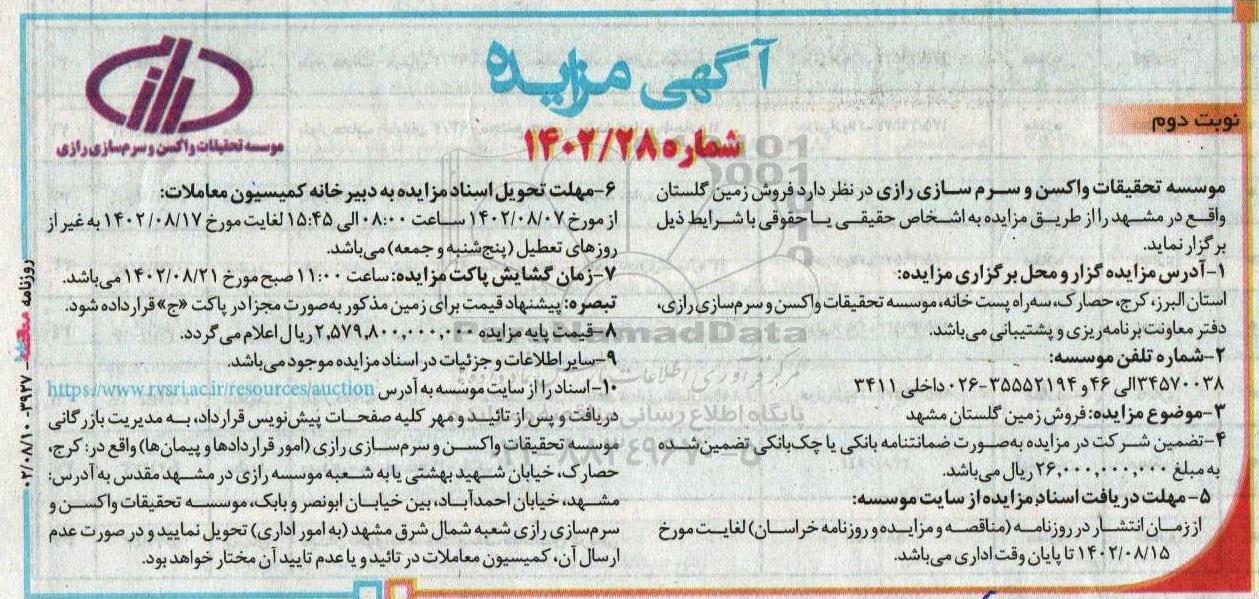 آگهی مزایده
شماره ۱۴۰۲/۲۸
نوبت دوم
موسسه تحقیقات واکسن و سرم سازی رازی
موسسه تحقیقات واکسن و سرم سازی رازی در نظر دارد فروش زمین گلستان
واقع در مشهد را از طریق مزایده به اشخاص حقیقی یا حقوقی با شرایط ذیل
برگزار نماید.
۱-آدرس مزایده گزار و محل برگزاری مزایده:
استان البرز، کرج، حصارک، سه راه پست خانه، موسسه تحقیقات واکسن و سرم سازی رازی،
دفتر معاونت برنامه ریزی و پشتیبانی می باشد.
۲-شماره تلفن موسسه:
۳۴۵۷۰۰۳۸ الی ۴۶ و ۳۵۵۵۲۱۹۴-۰۲۶ داخلی ۳۴۱۱
۳-موضوع مزایده: فروش زمین گلستان مشهد
۴-تضمین شرکت در مزایده به صورت ضمانتنامه بانکی یا چک بانکی تضمین شده
به مبلغ ۲۶,۰۰۰,۰۰۰,۰۰۰ ریال می باشد.
۵-مهلت دریافت اسناد مزایده از سایت موسسه:
از زمان انتشار در روزنامه (مناقصه و مزایده و روزنامه خراسان) لغایت مورخ
۱۴۰۲/۰۸/۱۵ تا پایان وقت اداری می باشد.
۶-مهلت تحویل اسناد مزایده به دبیرخانه کمیسیون معاملات:
از مورخ ۱۴۰۲/۰۸/۰۷ ساعت ۰۸:۰۰ الی ۱۵:۴۵ لغایت مورخ ۱۴۰۲/۰۸/۱۷ به غیر از
روزهای تعطیل (پنج شنبه و جمعه) می باشد.
۷-زمان گشایش پاکت مزایده: ساعت ۱۱:۰۰ صبح مورخ ۱۴۰۲/۰۸/۲۱ می باشد.
تبصره: پیشنهاد قیمت برای زمین مذکور به صورت مجزا در پاکت «ج» قرار داده شود.
۸-قیمت پایه مزایده ۲,۵۷۹,۸۰۰,۰۰۰,۰۰۰ ریال اعلام می گردد.
۹-سایر اطلاعات و جزئیات در اسناد مزایده موجود می باشد.
۱۰-اسناد را از سایت موسسه به آدرس https://www.rvsri.ac.ir/resources/auction
دریافت و پس از تائید و مهر کلیه صفحات پیش نویس قرارداد، به مدیریت بازرگانی
موسسه تحقیقات واکسن و سرم سازی رازی (امور قراردادها و پیمان ها) واقع در: کرج،
حصارک، خیابان شهید بهشتی یا به شعبه موسسه رازی در مشهد مقدس به آدرس:
مشهد، خیابان احمدآباد، بین خیابان ابونصر و بابک، موسسه تحقیقات واکسن و
سرم سازی رازی شعبه شمال شرق مشهد (به امور اداری) تحویل نمایید و در صورت عدم
ارسال آن، کمیسیون معاملات در تائید و یا عدم تایید آن مختار خواهد بود.
ParsNamadData
پایگاه اطلاع رسانی
روزنامه
۰۲/۰۸/۱۰-۳۹۳۷